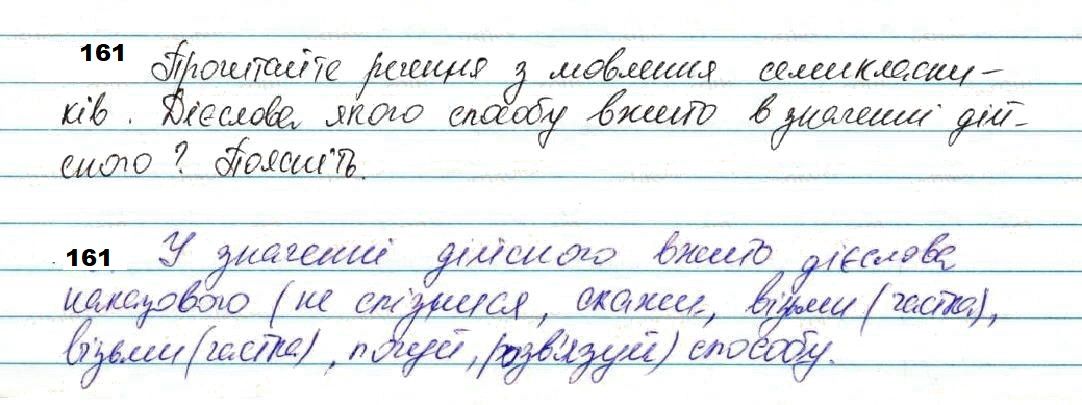 161 Прочитайте речення з мовлення семикласни-
ків. Дієслова якого способу вжито в значенні дій-
сного? Поясніть.
161 У значенні дійсного вжито дієслова
наказового (не спізнися, скажи, візьми (частка),
візьми (частка), почуй, розв'язуй) способу.